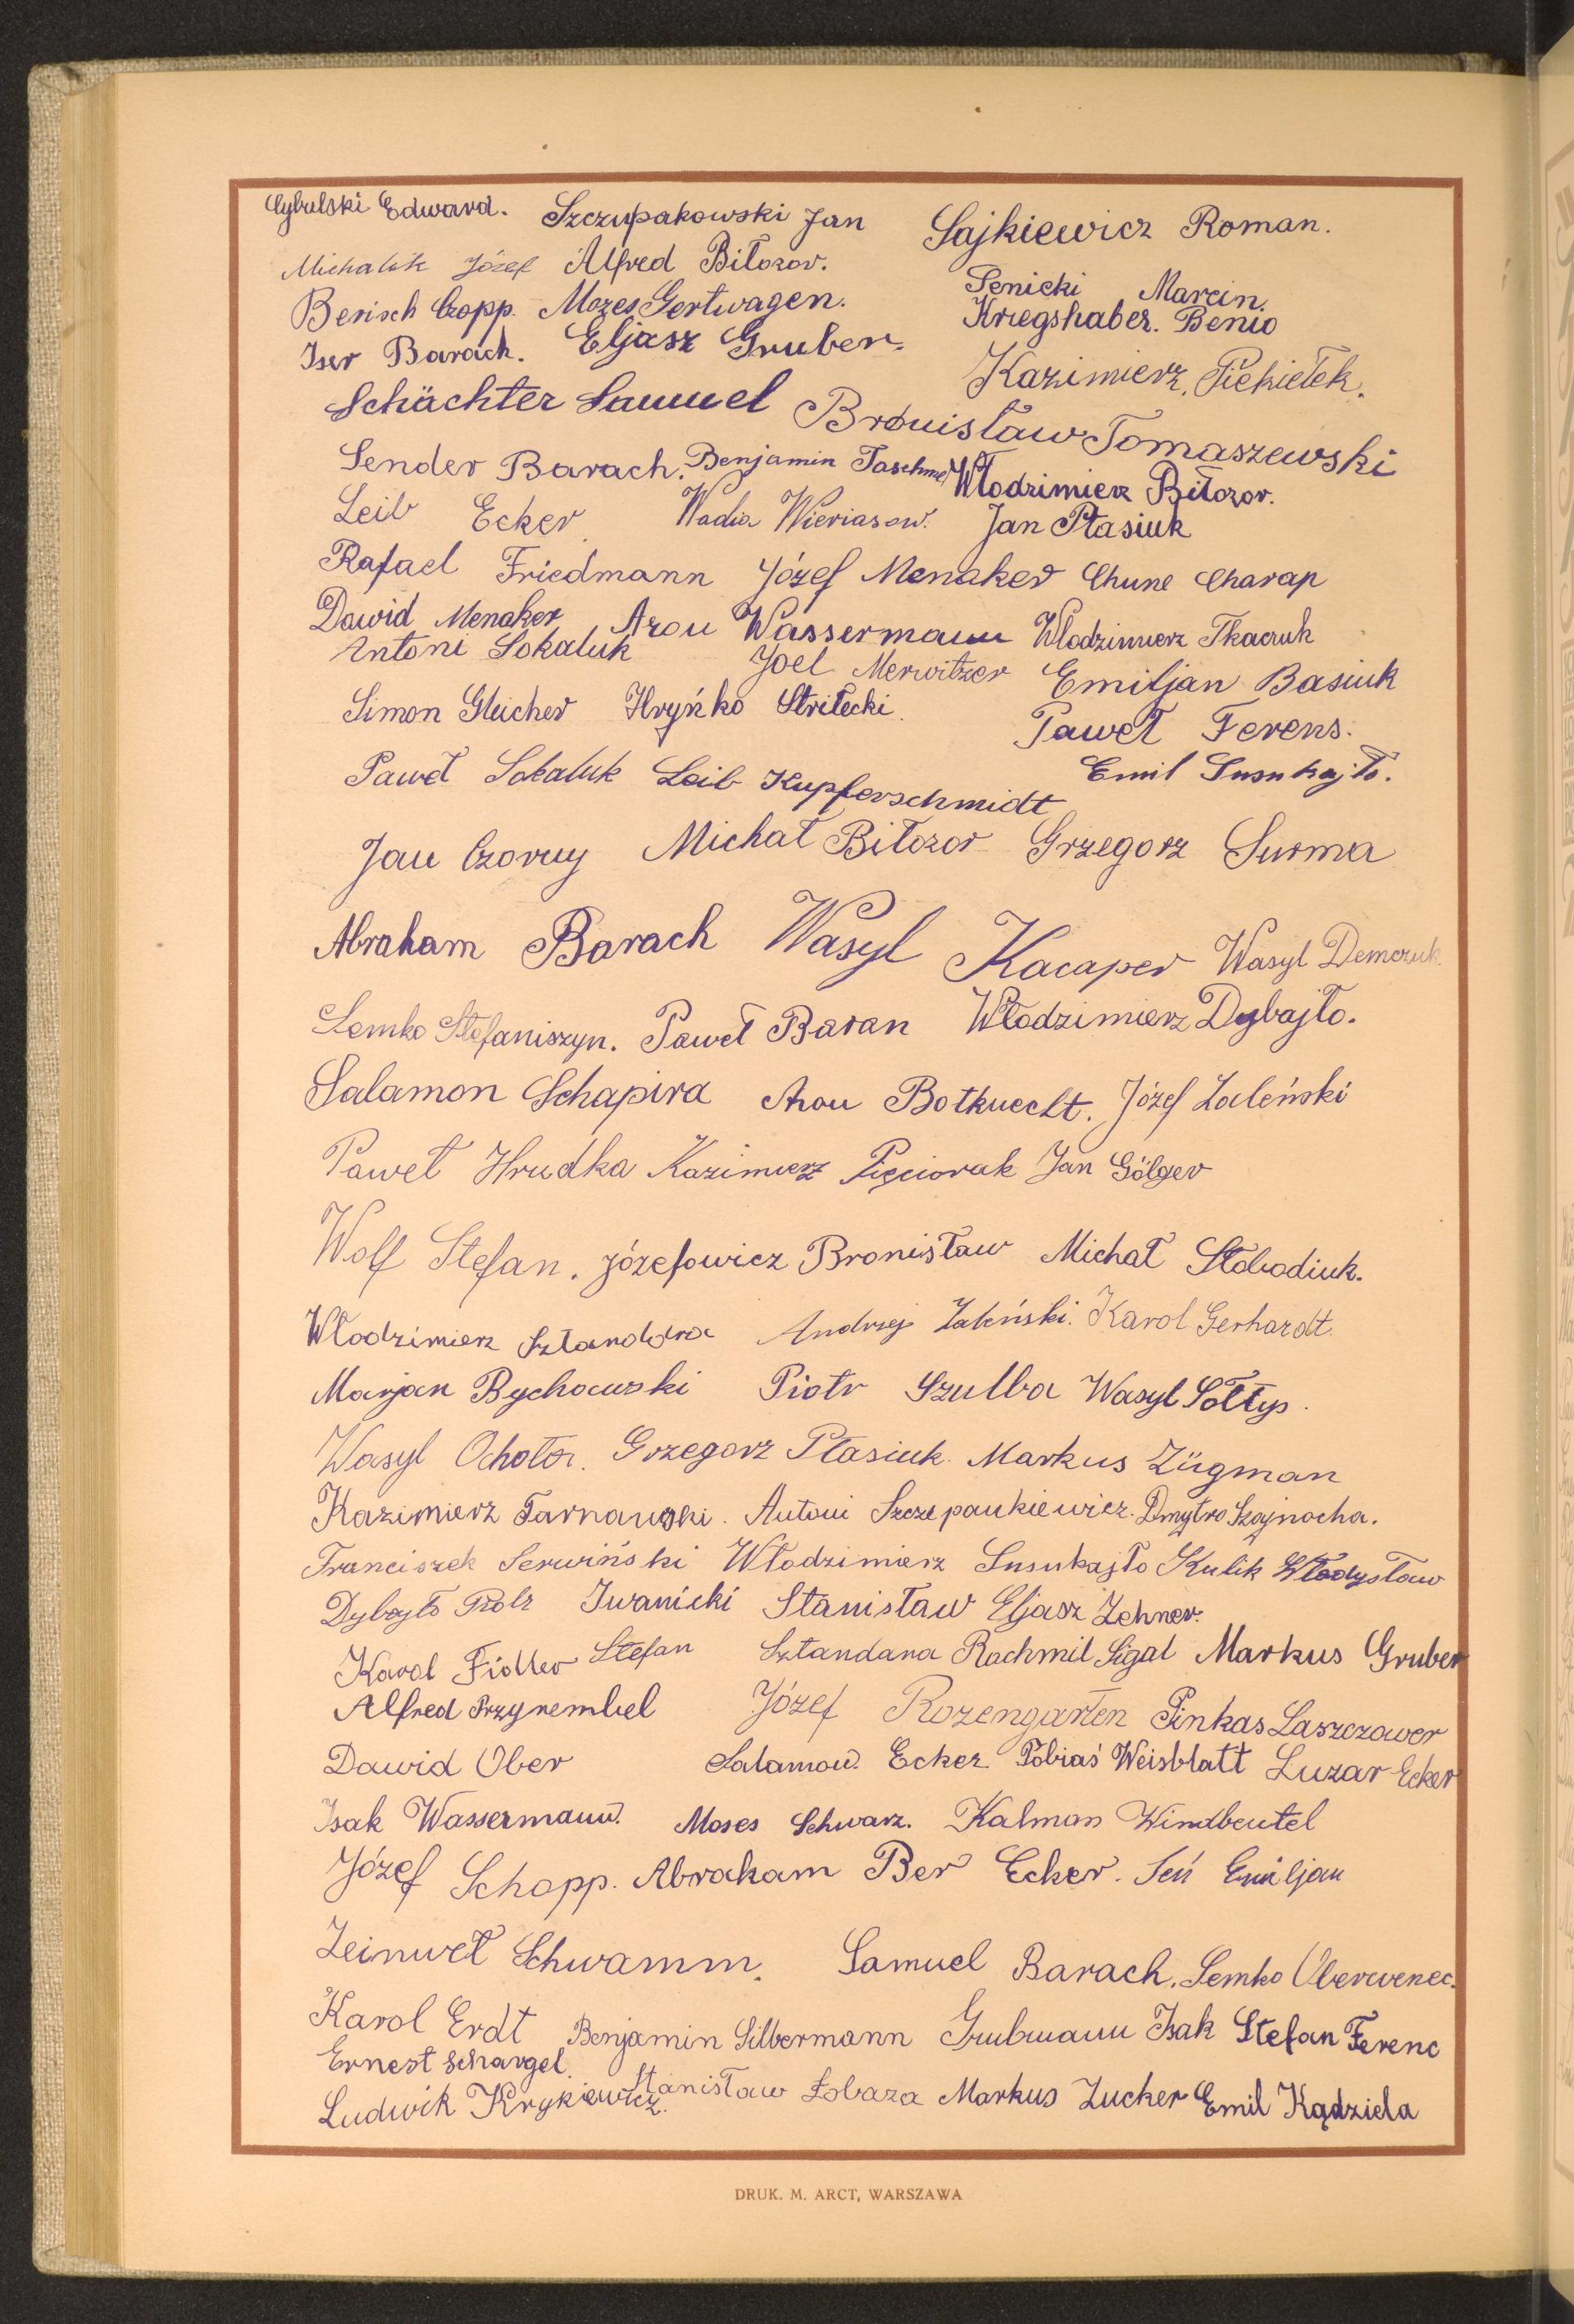 Cybulski Edward. Szczupakowski Jan Sajkiewicz Roman.
Michalik Józef Alfred Biłozor.
Penicki Marcin
Berisch Czopp. Mozes Gertwagen. Kriegshaber. Benio
Iser Barach. Eljasz Gruber.
Kazimierz Piekiełek.
Schächter Samuel Bronisław Tomaszewski
Sender Barach. Benjamin Taschme Włodzimierz Biłozor.
Leib Ecker Wadia Wieriasow. Jan Ptasiuk
Rafael Friedmann Józef Menaker Chune Charap
Dawid Menaker Aron Wassermann Włodzimierz Tkaczuk
Antoni Sokaluk Joel Merwitzer Emiljan Basiuk
Simon Gleicher Hryńko Striłecki Paweł Ferens.
Paweł Sokaluk Leib Kupferschmidt Emil Susukajło.
Jan Czorny Michał Biłozor Grzegorz Surma
Abraham Barach Wasyl Kacaper Wasyl Demczuk
Semko Stefaniszyn. Paweł Baran Włodzimierz Dybajło.
Salamon Schapira Aron Botknecht. Józef Zaleński
Paweł Hrudka Kazimierz Pięciorak Jan Gölger
Wolf Stefan. Józefowicz Bronisław Michał Słobodiuk.
Włodzimierz Sztandara Andrzej Zaleński. Karol Gerhardt.
Marjan Bychowski Piotr Szulba Wasyl Sołtys.
Wasyl Ochota. Grzegorz Ptasiuk. Markus Zügman
Kazimierz Tarnawski. Antoni Szczepankiewicz. Dmytro Szajnocha.
Franciszek Serwiński Włodzimierz Susukajło Kulik Władysław
Dybajło Piotr Iwanicki Stanisław Eljasz Zehner.
Karol Fidler Stefan Sztandara Rachmil Sigal Markus Gruber
Alfred Przyrembel Józef Rozengarten Pinkas Laszczower
Dawid Ober Salamon Ecker Tobiaś Weisblatt Luzar Ecker
Isak Wassermann. Moses Schwarz. Kalman Windbeutel
Józef Schopp. Abraham Ber Ecker. Seń Emiljan
Zeinweł Schwamm. Samuel Barach. Semko Oberwenec.
Karol Erdt Benjamin Silbermann Grubmann Isak Stefan Ferenc
Ernest Schargel.
Ludwik Krykiewicz. Stanisław Łobaza Markus Zucker Emil Kądziela
DRUK. M. ARCT, WARSZAWA